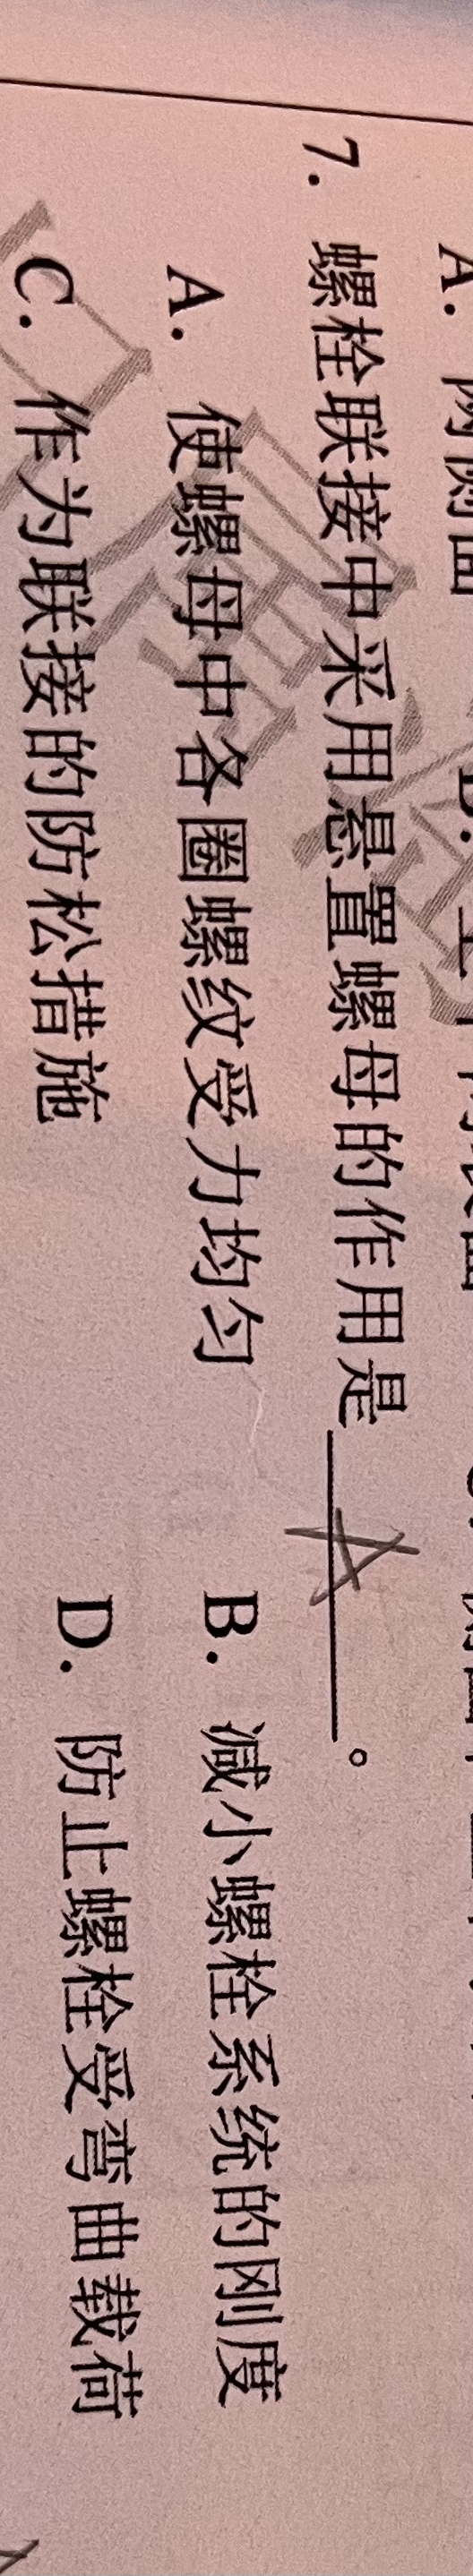 7. 螺栓联接中采用悬置螺母的作用是 A 。
A. 使螺母中各圈螺纹受力均匀 B. 减小螺栓系统的刚度
C. 作为联接的防松措施 D. 防止螺栓受弯曲载荷